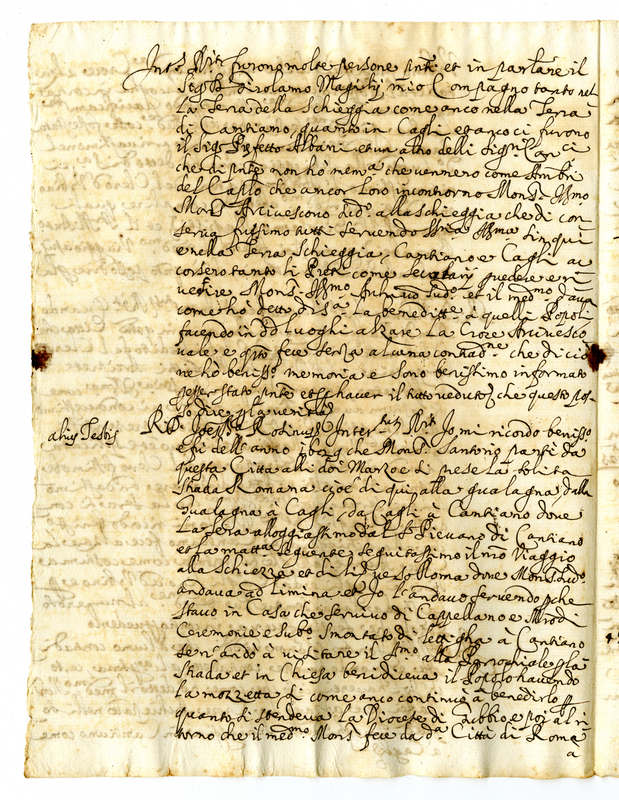 Int.s Rit furono molte persone pnti et in parlare il
Sig.r Girolamo Magilij mio Compagno tanto nel
La Terra della Schieggia come anco nella Terra
di Cantiano, quanto in Cagli et anco ci furono
il Sig.r Prefetto Albani et un altro delli Sign.ri
che di pnte non hò mem.a che vennero come Amb.ri
del che ancor loro incontrorno Mons.r Ill.mo
Mons.r Arcivescovo sud.o alla Schieggia che di con
serva fussimo tutti servendo Ill.ma sin qui
e nella Terra Schieggia, Cantiano e Cagli ac
corsero tanto li Preti come Secolarij p vedere e ri
verire Mons.r Ill.mo sud.o et il med.mo dava
come hò detto di sà la beneditt.e à quelli Popoli
facendo in dd.i luoghi alzare la Croce Arcivesco
vale e qsto fece senza alcuna contrad.ne che di ciò
ne hò beniss.o memoria e sono benissimo informato
p esser stato pnte et p haver il tutto veduto, che questo pos
so dire p la verità
alius Testis R.D. Joseph Rodinus Inter.tus Rit Io mi ricordo beniss.o
che Mons.r Santorio partì da
questa Città alli doi Marzo e si prese la solita
strada Romana cioè di qui alla gualagna, dalla
Gualagna à Cagli, da Cagli à Cantiano dove
la sera alloggiassimo dal S.r Pievano di Cantiano
et la matt.a seguente seguitassimo il nro viaggio
alla Schiezza et di li verso Roma dove Mons.r sud.o
andava ad limina et Io l'andavo servendo pche
stavo in Casa che servivo di Cappellano e Mro di
Ceremonie e sub.o smontato di lettigha à Cantiano
se n'andò à visitare il S.mo alla Parochiale p la
strada et in Chiesa benidiceva il Popolo havendo
la mozzetta si come anco continuò à benedirlo p
quanto si stendeva la Diocese di Gubbio, e poi al ri
torno che il med.mo Mons.r fece da d.a Città di Roma
à